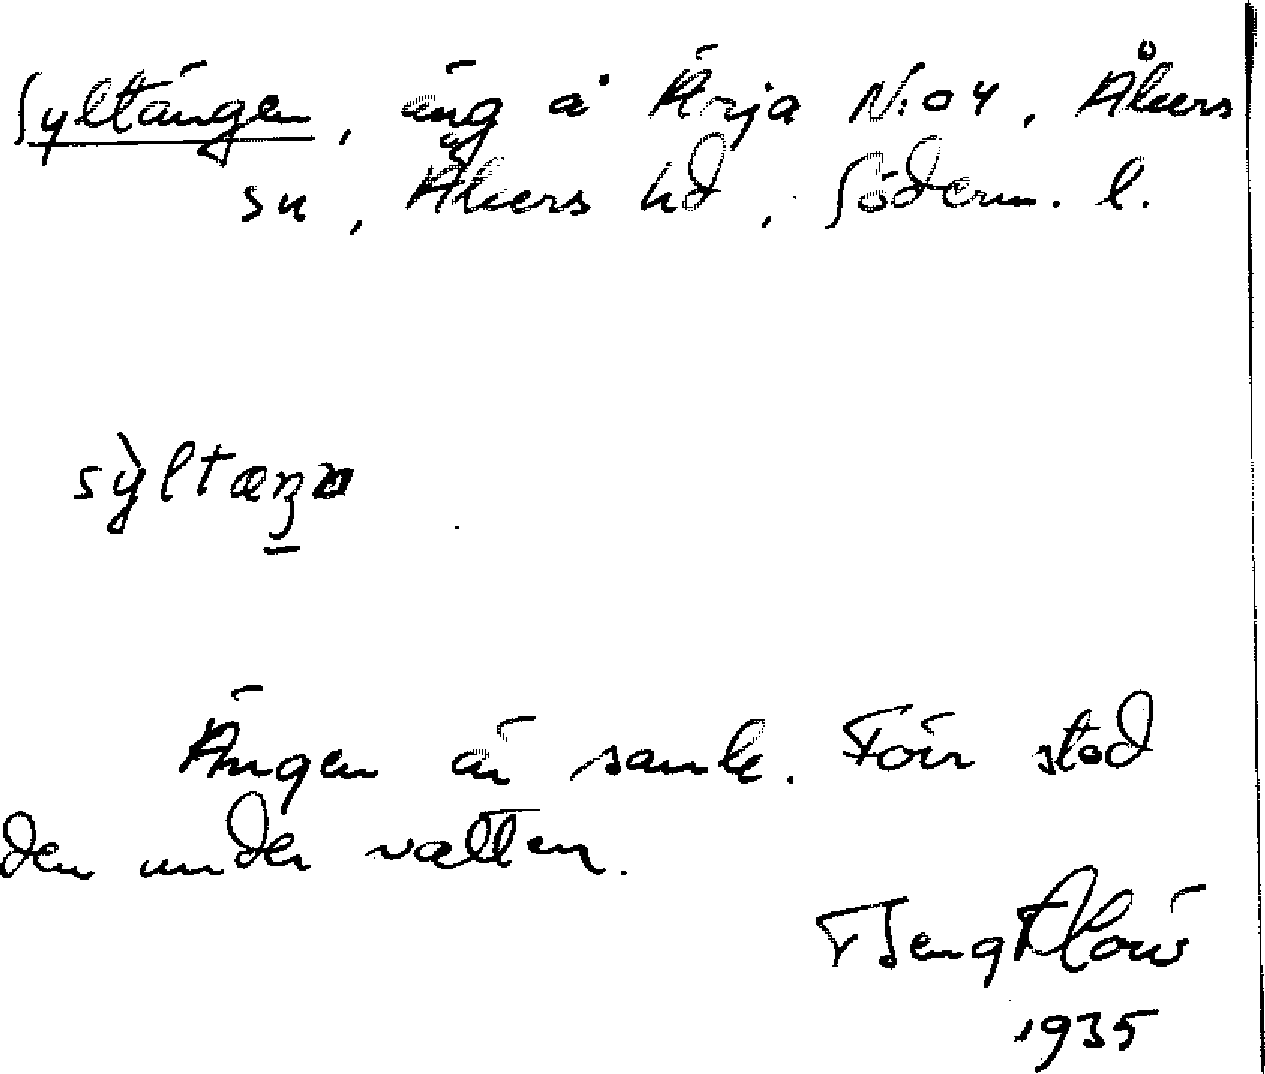 Syltängen, äng å Ärja N:o 4, Åkers
sn, Åkers hd, Söderm. l.
sỳltæŋa
Ängen är sank. Förr stod
den under vatten.
Bengt
1935